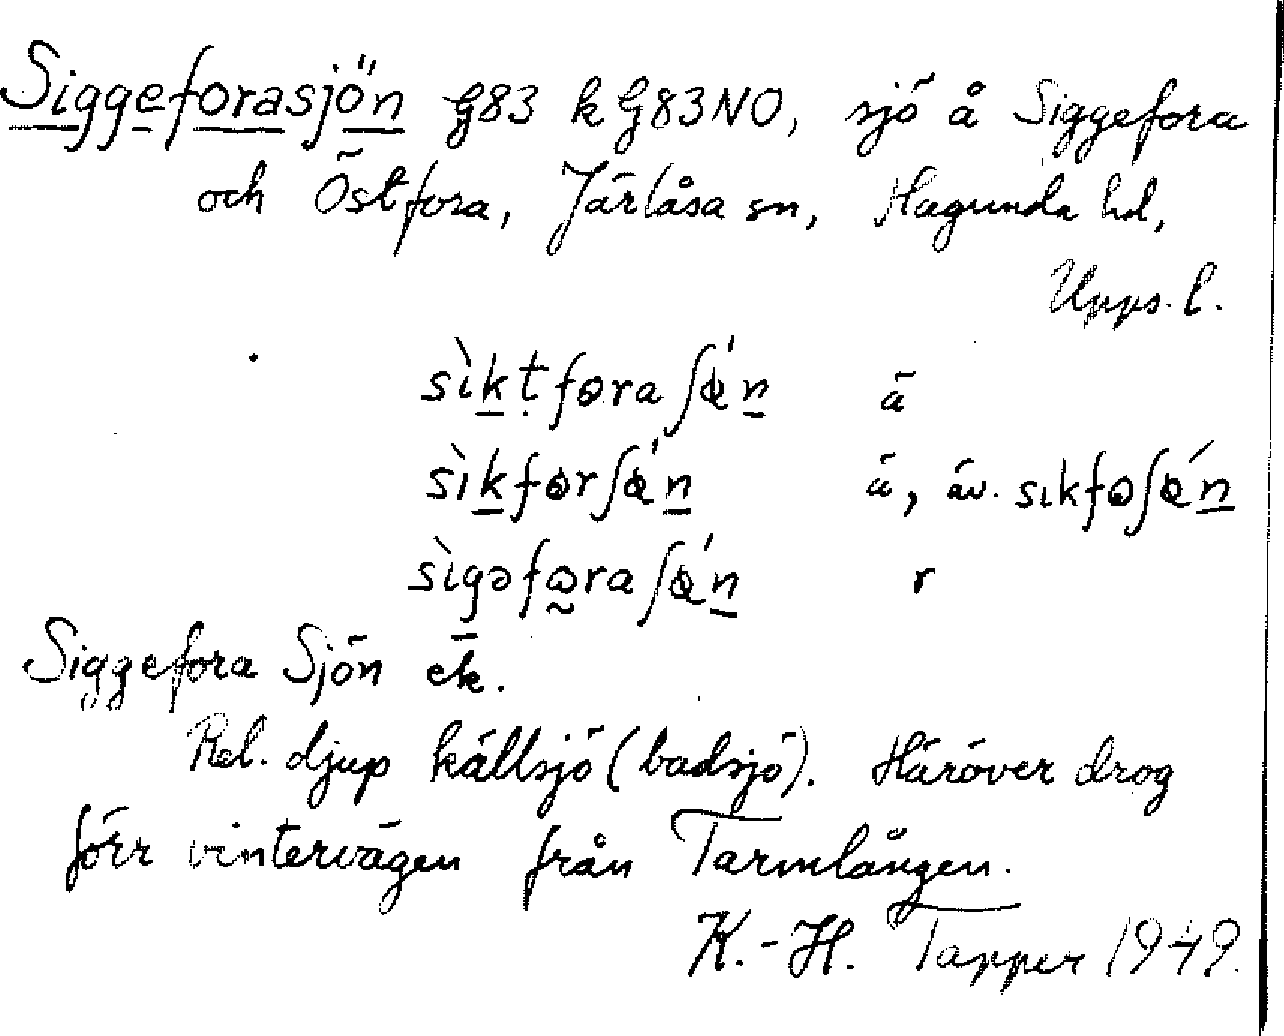 Siggeforasjön G83 k G83NO, sjö å Siggefora
och Östfora, Järlåsa sn, Hagunda hd,
Upps. l.
sìkṭforaʃǿn ä
sìkforʃǿn ä, äv. sıkfoʃǿn
sìgəforaʃǿn r
Siggefora Sjön ek.
Rel. djup källsjö (badsjö). Häröver drog
förr vintervägen från Tarmlången.
K.-H. Tapper 1949.